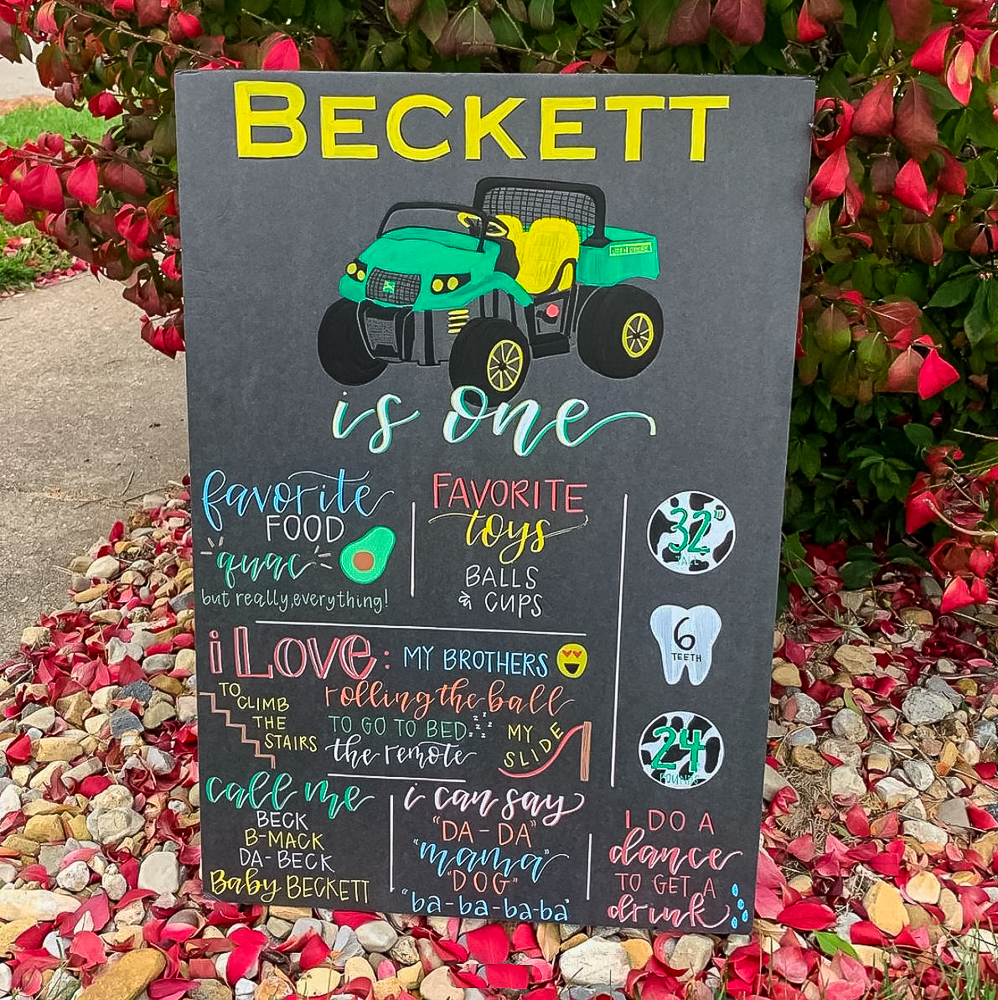 BECKETT
JOHN DEERE
is one
favorite
FOOD
guac
but really, everything!
FAVORITE
toys
BALLS
& CUPS
32"
TALL
6
TEETH
24
POUNDS
i LOVE: MY BROTHERS
TO
CLIMB
THE
STAIRS
rolling the ball
TO GO TO BED zzz
the remote
MY
SLIDE
call me
BECK
B-MACK
DA-BECK
Baby BECKETT
i can say
"DA-DA"
"mama"
"DOG"
"ba-ba-ba-ba"
I DO A
dance
TO GET A
drink